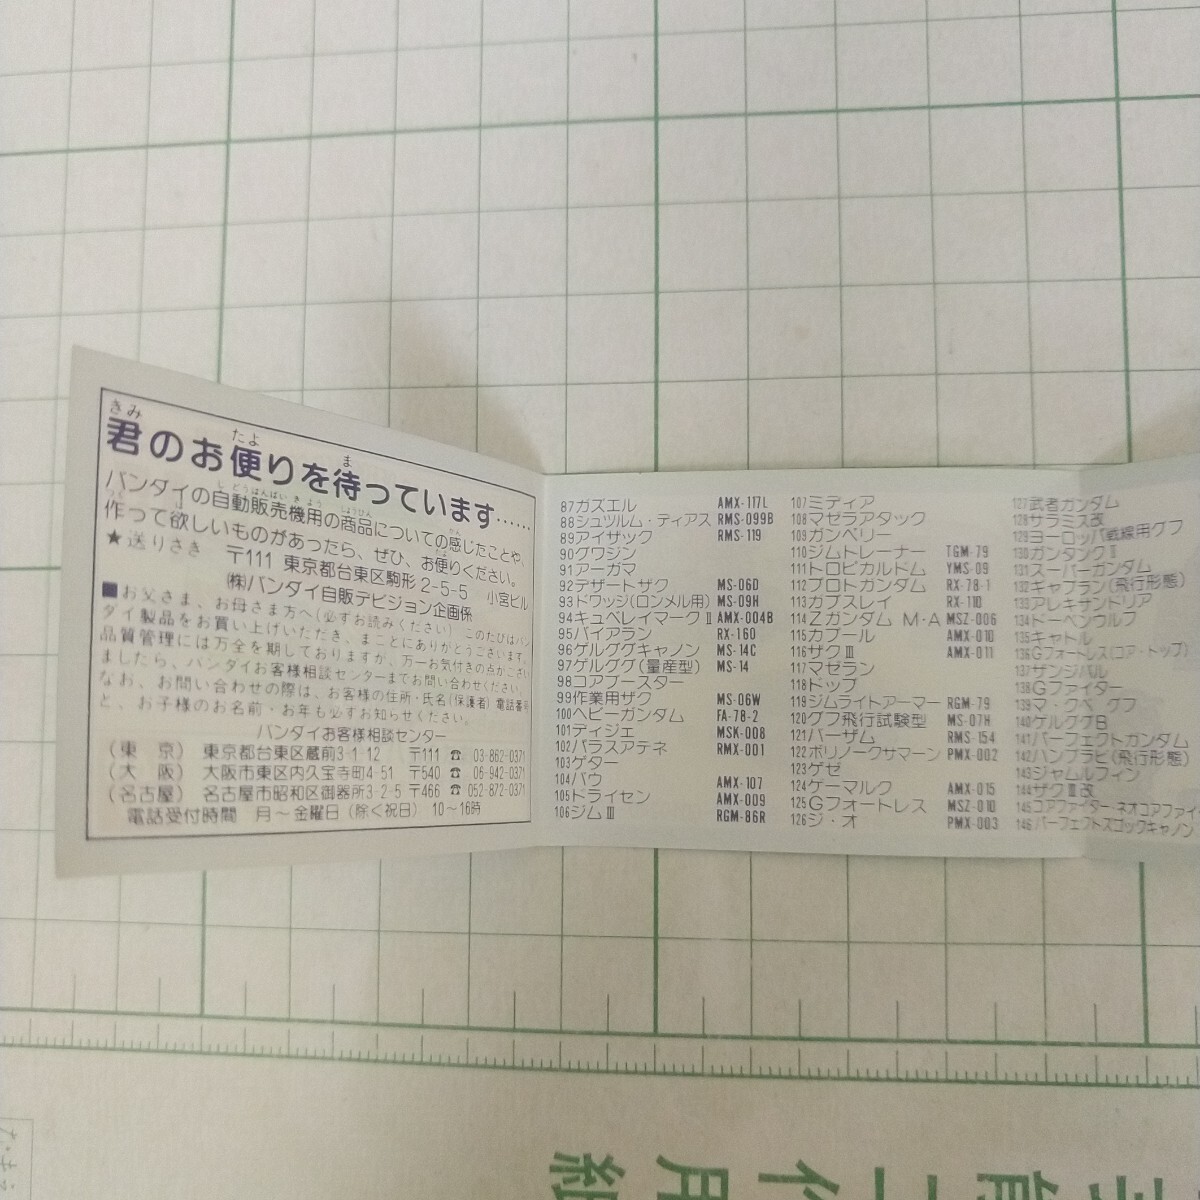 君のお便りを待っています……
きみ たよ ま
バンダイの自動販売機用の商品についての感じたことや、
作って欲しいものがあったら、ぜひ、お便りください。
★送りさき 〒111 東京都台東区駒形2-5-5 小宮ビル
㈱バンダイ自販デビジョン企画係
■お父さま、お母さま方へ(必ずお読みください) このたびはバン
ダイ製品をお買い上げいただき、まことにありがとうございます。
品質管理には万全を期しておりますが、万一お気付きの点がござい
ましたら、バンダイお客様相談センターまでお問い合わせください。
なお、お問い合わせの際は、お客様の住所・氏名(保護者)電話番号
と、お子様のお名前・お年も必ずお知らせください。
バンダイお客様相談センター
(東 京) 東京都台東区蔵前3-1-12 〒111 ☎ 03-862-0371
(大 阪) 大阪市東区内久宝寺町4-51 〒540 ☎ 06-942-0371
(名古屋) 名古屋市昭和区御器所3-2-5 〒466 ☎ 052-872-0371
電話受付時間 月〜金曜日(除く祝日) 10〜16時
87ガズエル AMX-117L
88シュツルム・ディアス RMS-099B
89アイザック RMS-119
90グワジン
91アーガマ
92デザートザク MS-06D
93ドワッジ(ロンメル用) MS-09H
94キュベレイマークⅡ AMX-004B
95バイアラン RX-160
96ゲルググキャノン MS-14C
97ゲルググ(量産型) MS-14
98コアブースター
99作業用ザク MS-06W
100ヘビーガンダム FA-78-2
101ディジェ MSK-008
102パラスアテネ RMX-001
103ゲター
104バウ AMX-107
105ドライセン AMX-009
106ジムⅢ RGM-86R
107ミディア
108マゼラアタック
109ガンペリー
110ジムトレーナー TGM-79
111トロピカルドム YMS-09
112プロトガンダム RX-78-1
113ガブスレイ RX-110
114Zガンダム M・A MSZ-006
115カプール AMX-010
116ザクⅢ AMX-011
117マゼラン
118ドップ
119ジムライトアーマー RGM-79
120グフ飛行試験型 MS-07H
121バーザム RMS-154
122ボリノークサマーン PMX-002
123ゲゼ
124ゲーマルク AMX-015
125Gフォートレス MSZ-010
126ジ・オ PMX-003
127武者ガンダム
128サラミス改
129ヨーロッパ戦線用グフ
130ガンタンクⅡ
131スーパーガンダム
132ギャプラン(飛行形態)
133アレキサンドリア
134ドーベンウルフ
135キャトル
136Gフォートレス(コア・トップ)
137ザンジバル
138Gファイター
139マ・クベ グフ
140ゲルググB
141パーフェクトガンダム
142ハンブラビ(飛行形態)
143ジャムルフィン
144ザクⅢ改
145コアファイター・ネオコアファイ
146パーフェクトズゴックキャノン